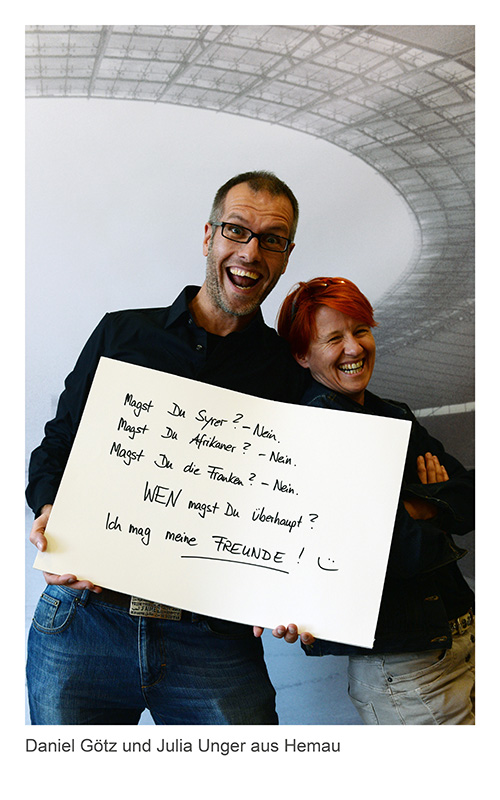 Magst Du Syrer? – Nein.
Magst Du Afrikaner? – Nein.
Magst Du die Franken? – Nein.
WEN magst Du überhaupt?
Ich mag meine FREUNDE! :)
Daniel Götz und Julia Unger aus Hemau